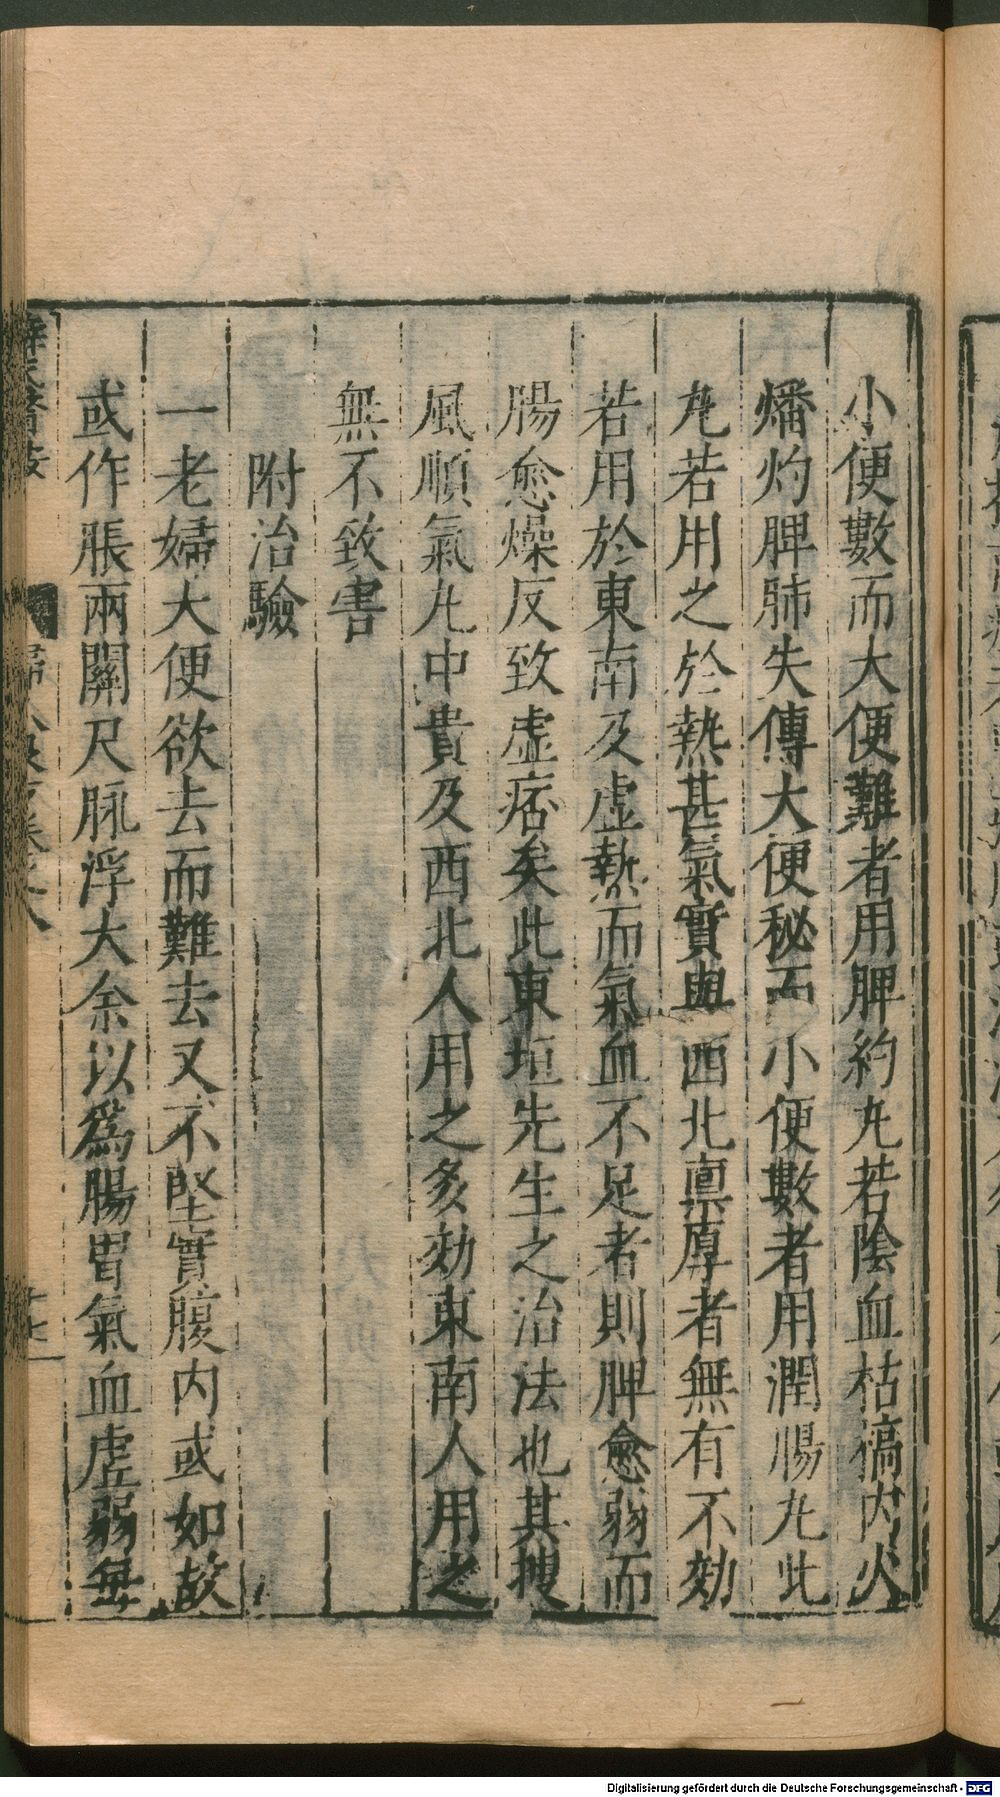 小便數而大便難者用脾約丸若陰血枯槁内火
燔灼脾肺失傳大便秘而小便數者用潤腸丸此
丸若用之於熱甚氣實與西北禀厚者無有不効
若用於東南及虚熱而氣血不足者則脾愈弱而
腸愈燥反致虚痞矣此東垣先生之治法也其搜
風順氣丸中貴及西北人用之多効東南人用之
無不致害
附治驗
一老婦大便欲去而難去又不堅實腹内或如故
或作脹兩關尺脉浮大余以爲腸胃氣血虚弱每
Digitalisierung gefördert durch die Deutsche Forschungsgemeinschaft - DFG